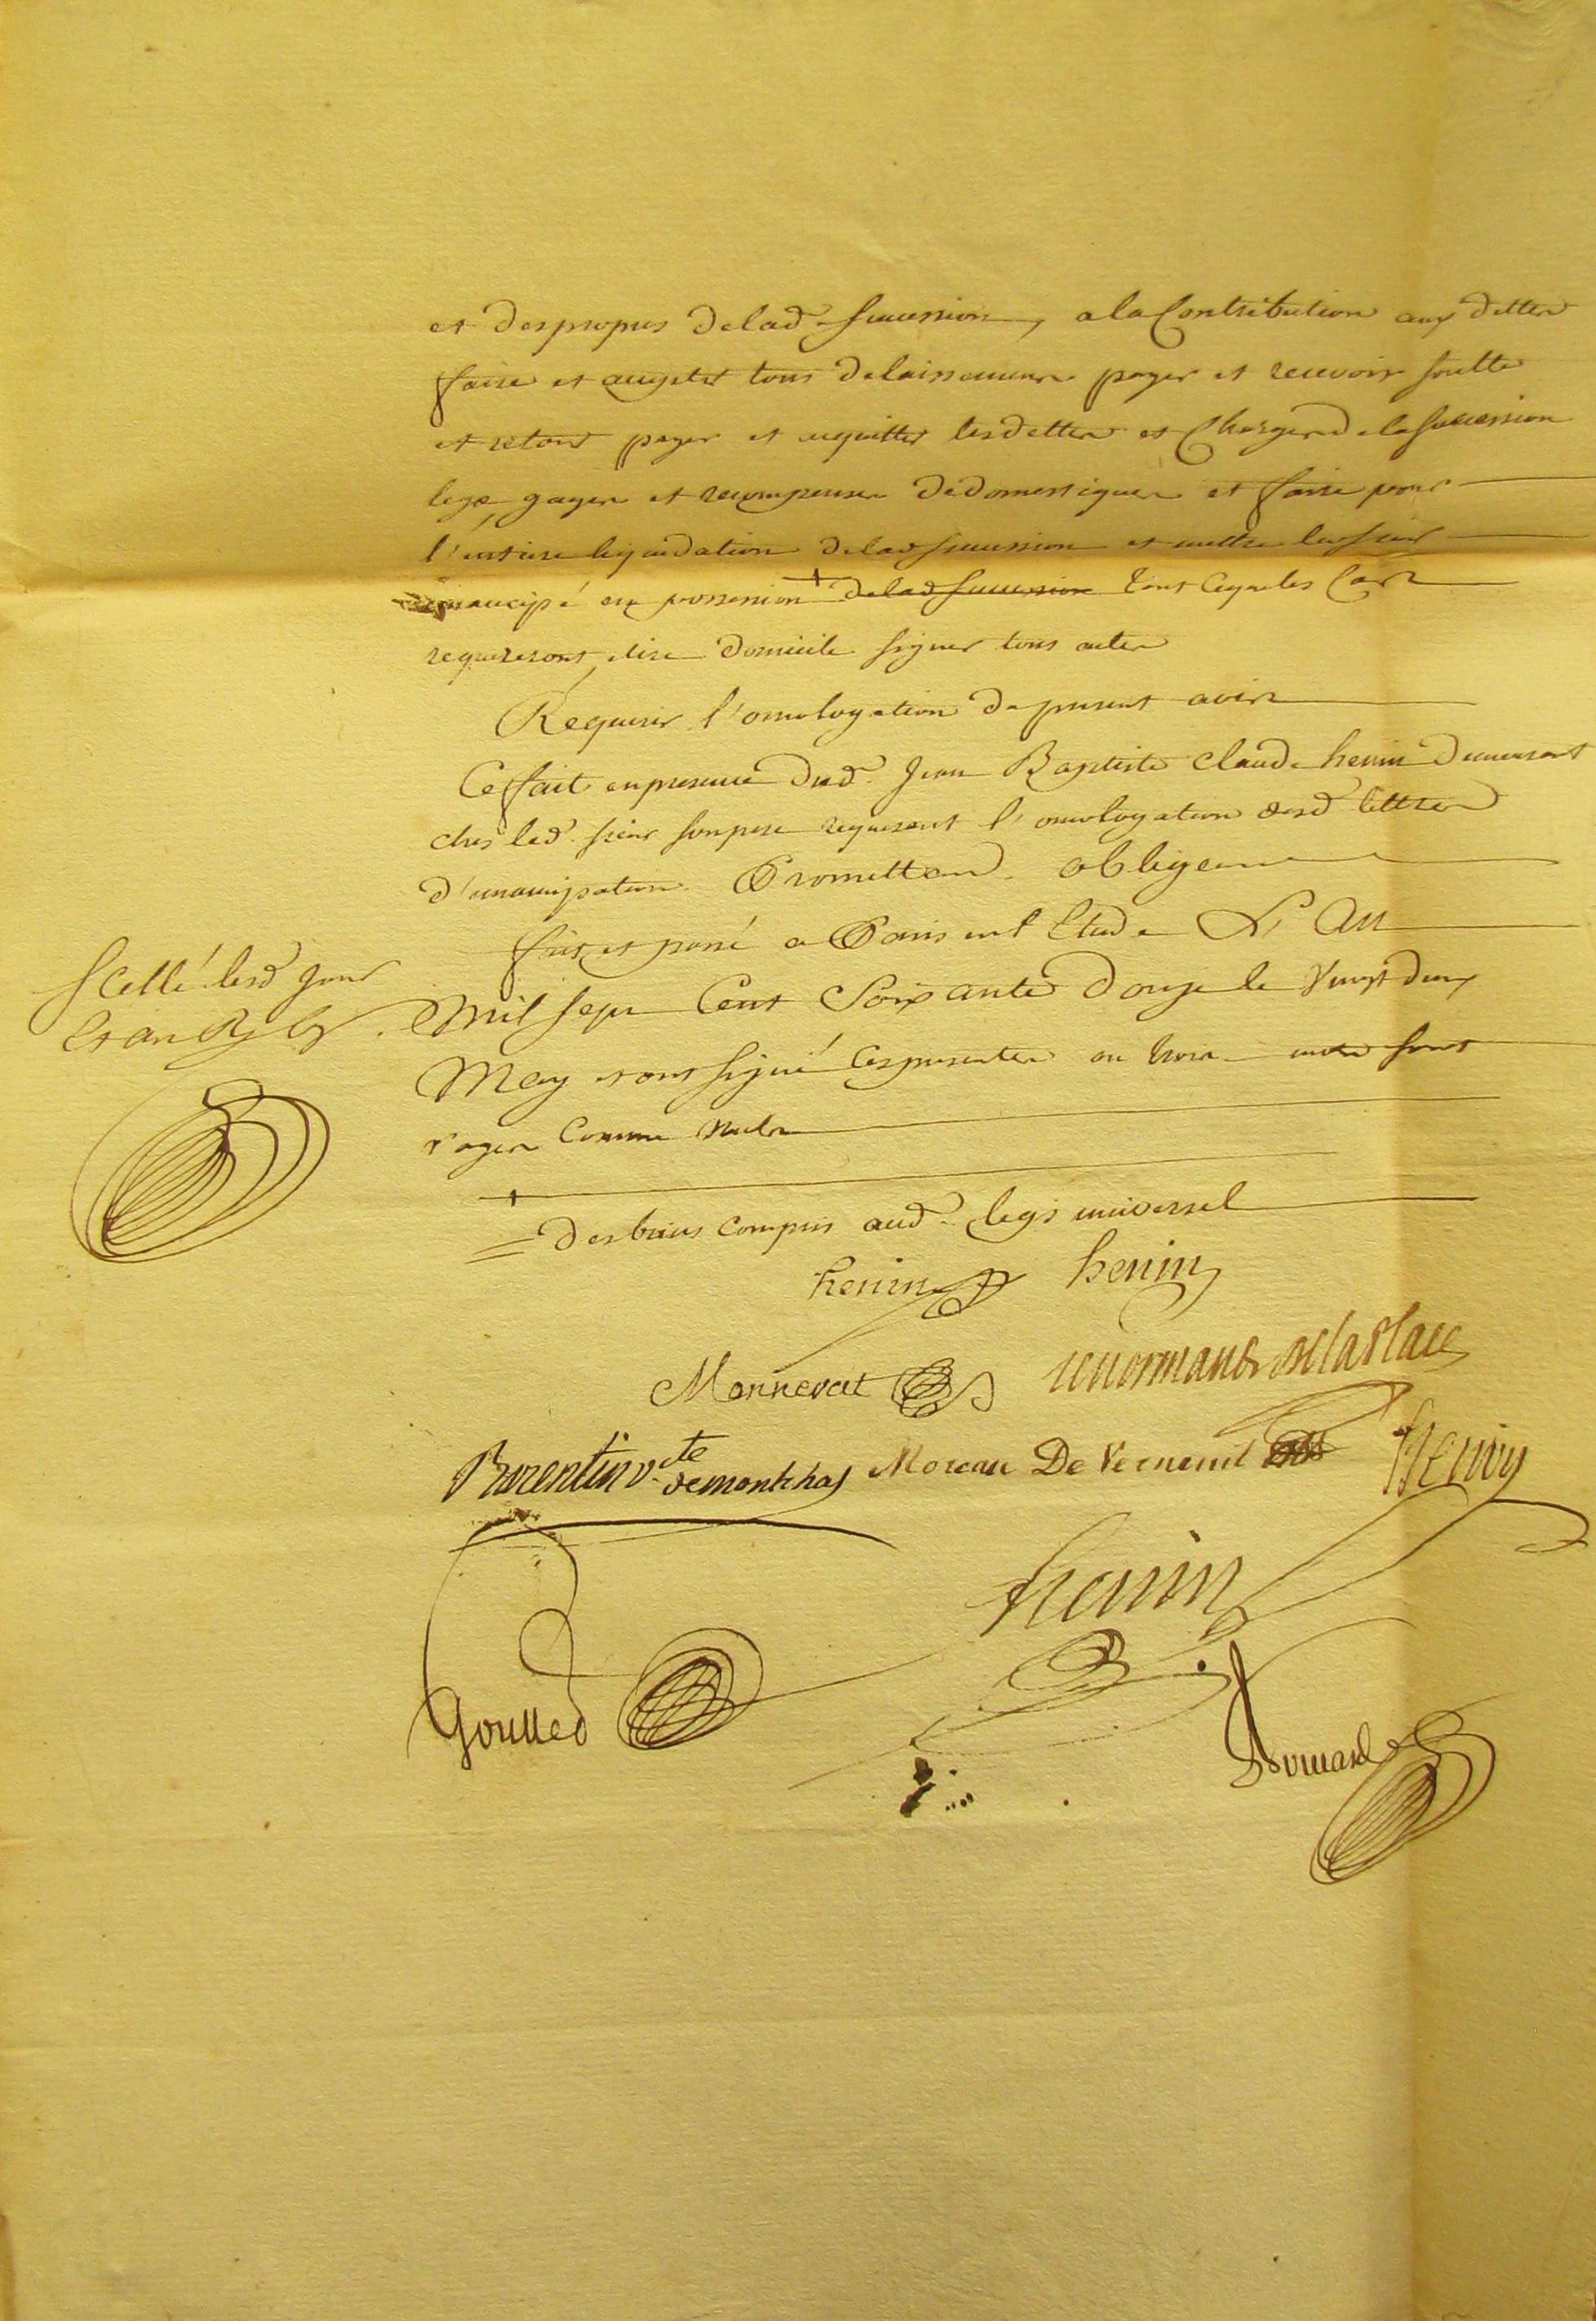 et des propres de lad. succession, a la Contribution aux dettes
faire et accepter tous delaissemens payer et recevoir soulte
et retour payer et acquitter les dettes et Charges de la succession
legs, gages et recompenses de domestiques et faire pour
l'entiere liquidation de lad succession et mettre led sieur
emancipé en possession + de lad succession tout ce que les Cas
requereront, elire domicile signer tous actes
Requerir l'omologation du present avis
Ce fait en presence dud. Jean Baptiste Claude henin demeurant
chés led. sieur son pere requerant l'omologation desd lettres
d'emancipation. Promettans. obligeans
fait et passé a Paris en l'Etude L'An
Mil sept Cent Soixante douze le Vingt deux
May et ont signé Ces presentes ou trois mots sont
rayés Comme Nuls
+
= des biens compris aud. legs universel
Scellé lesd jour
et an
henin henin
Mannevat lenormand delaplace
Barentin v.te de montchal Moreau De Verneuil henin
henin
Goullet Douard